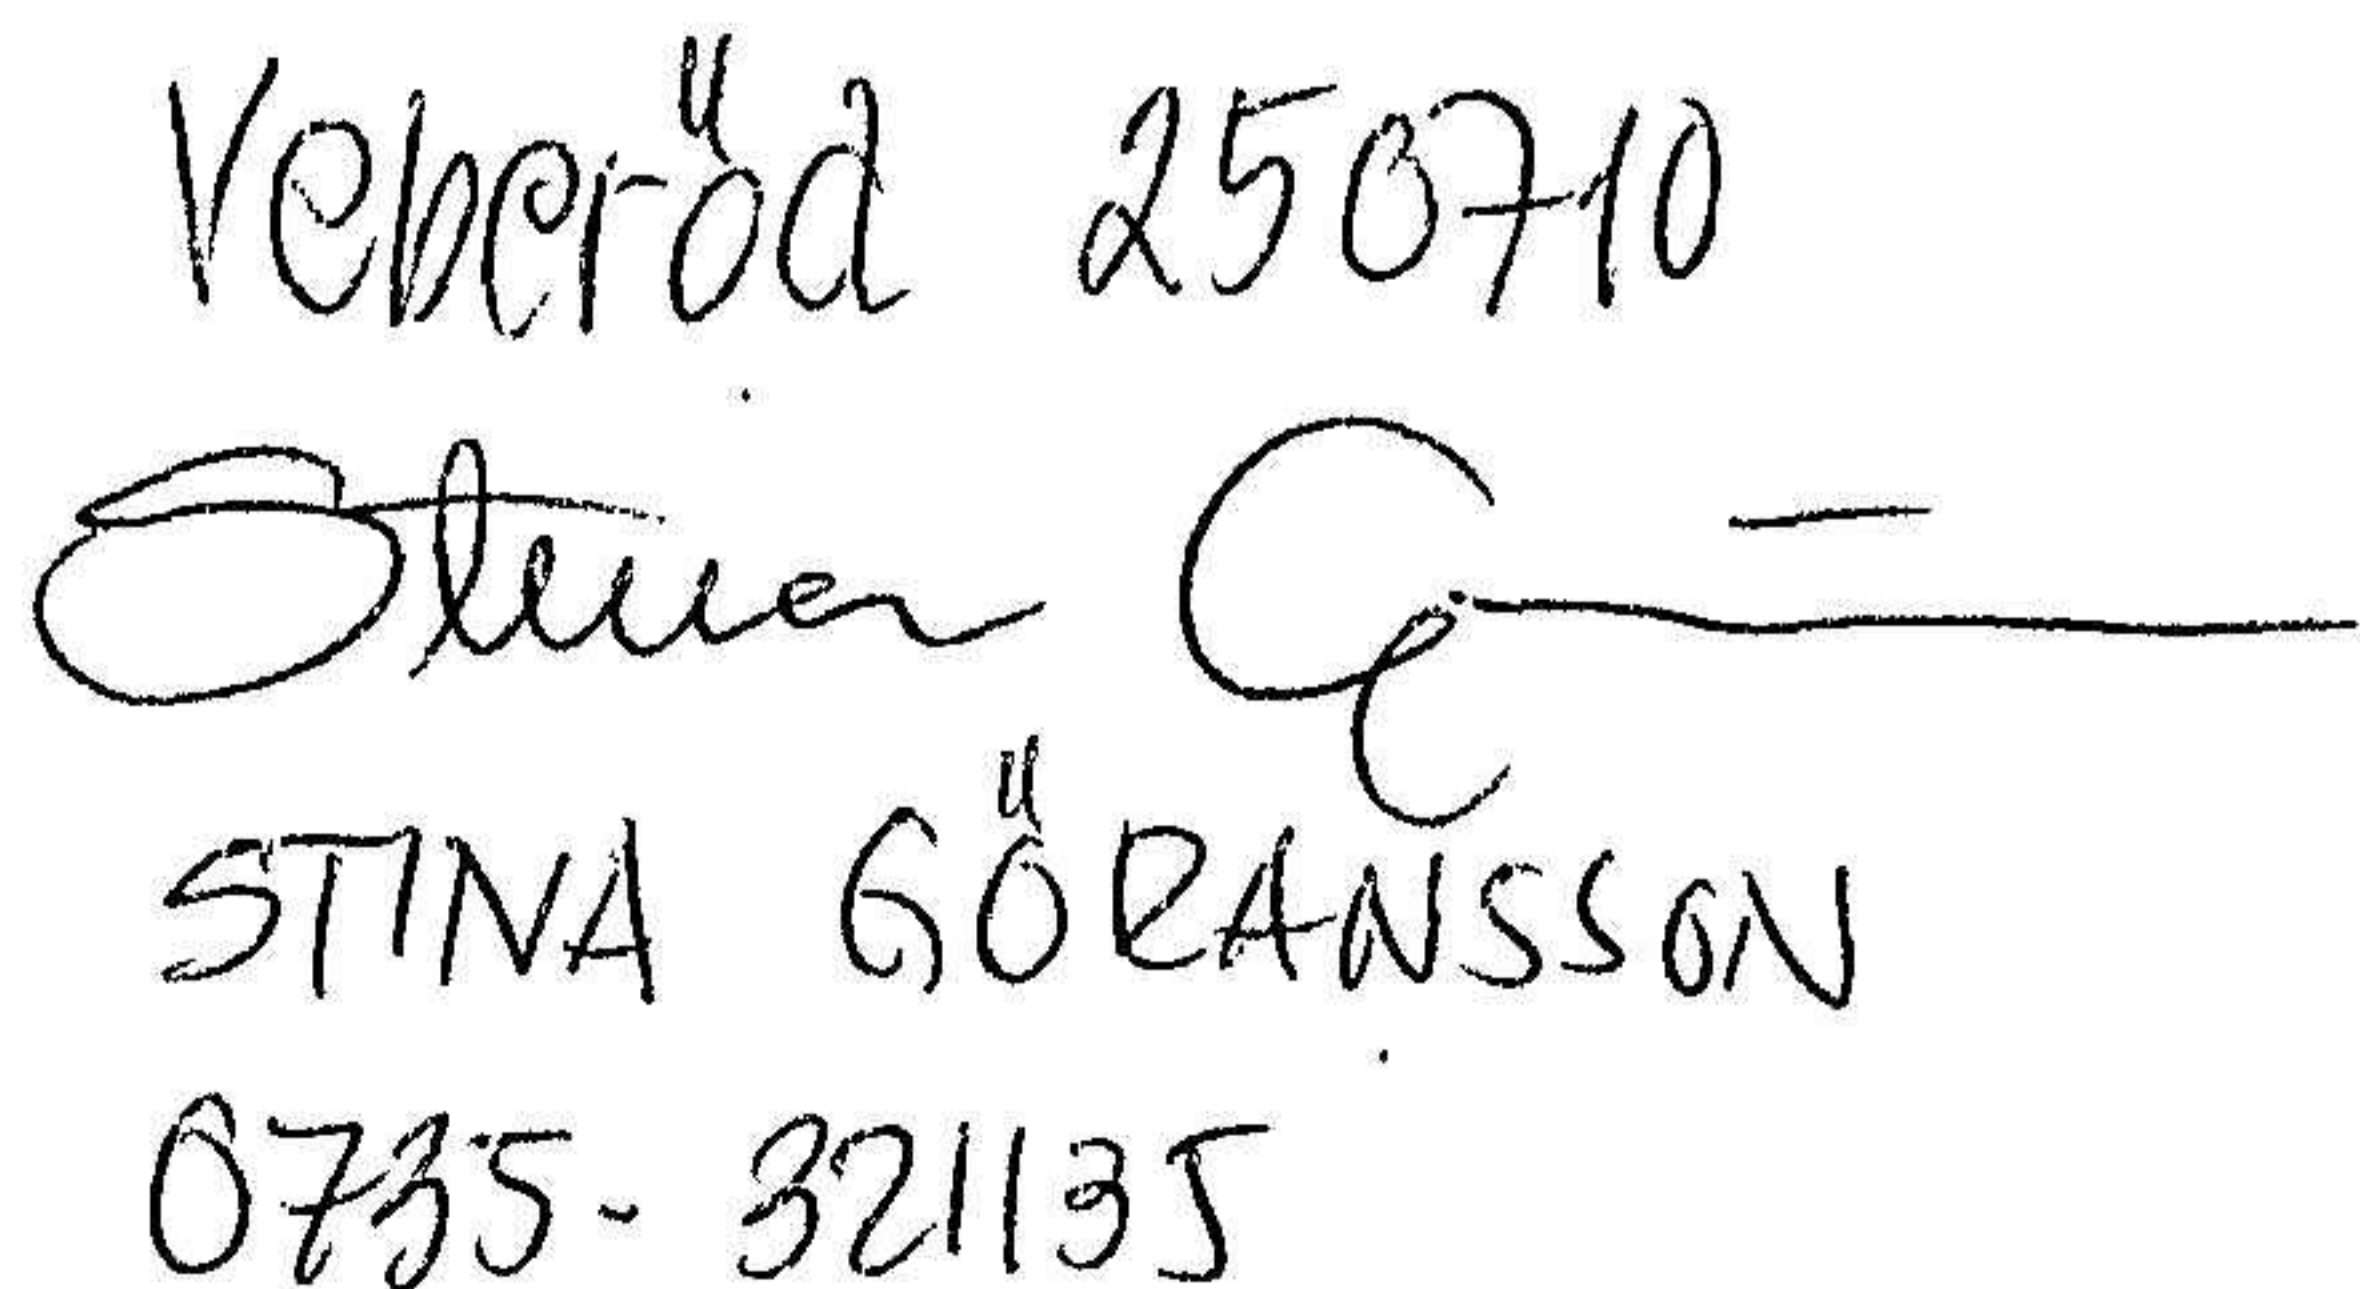 Veberöd 250710
Stina G
STINA GÖRANSSON
0735-321135